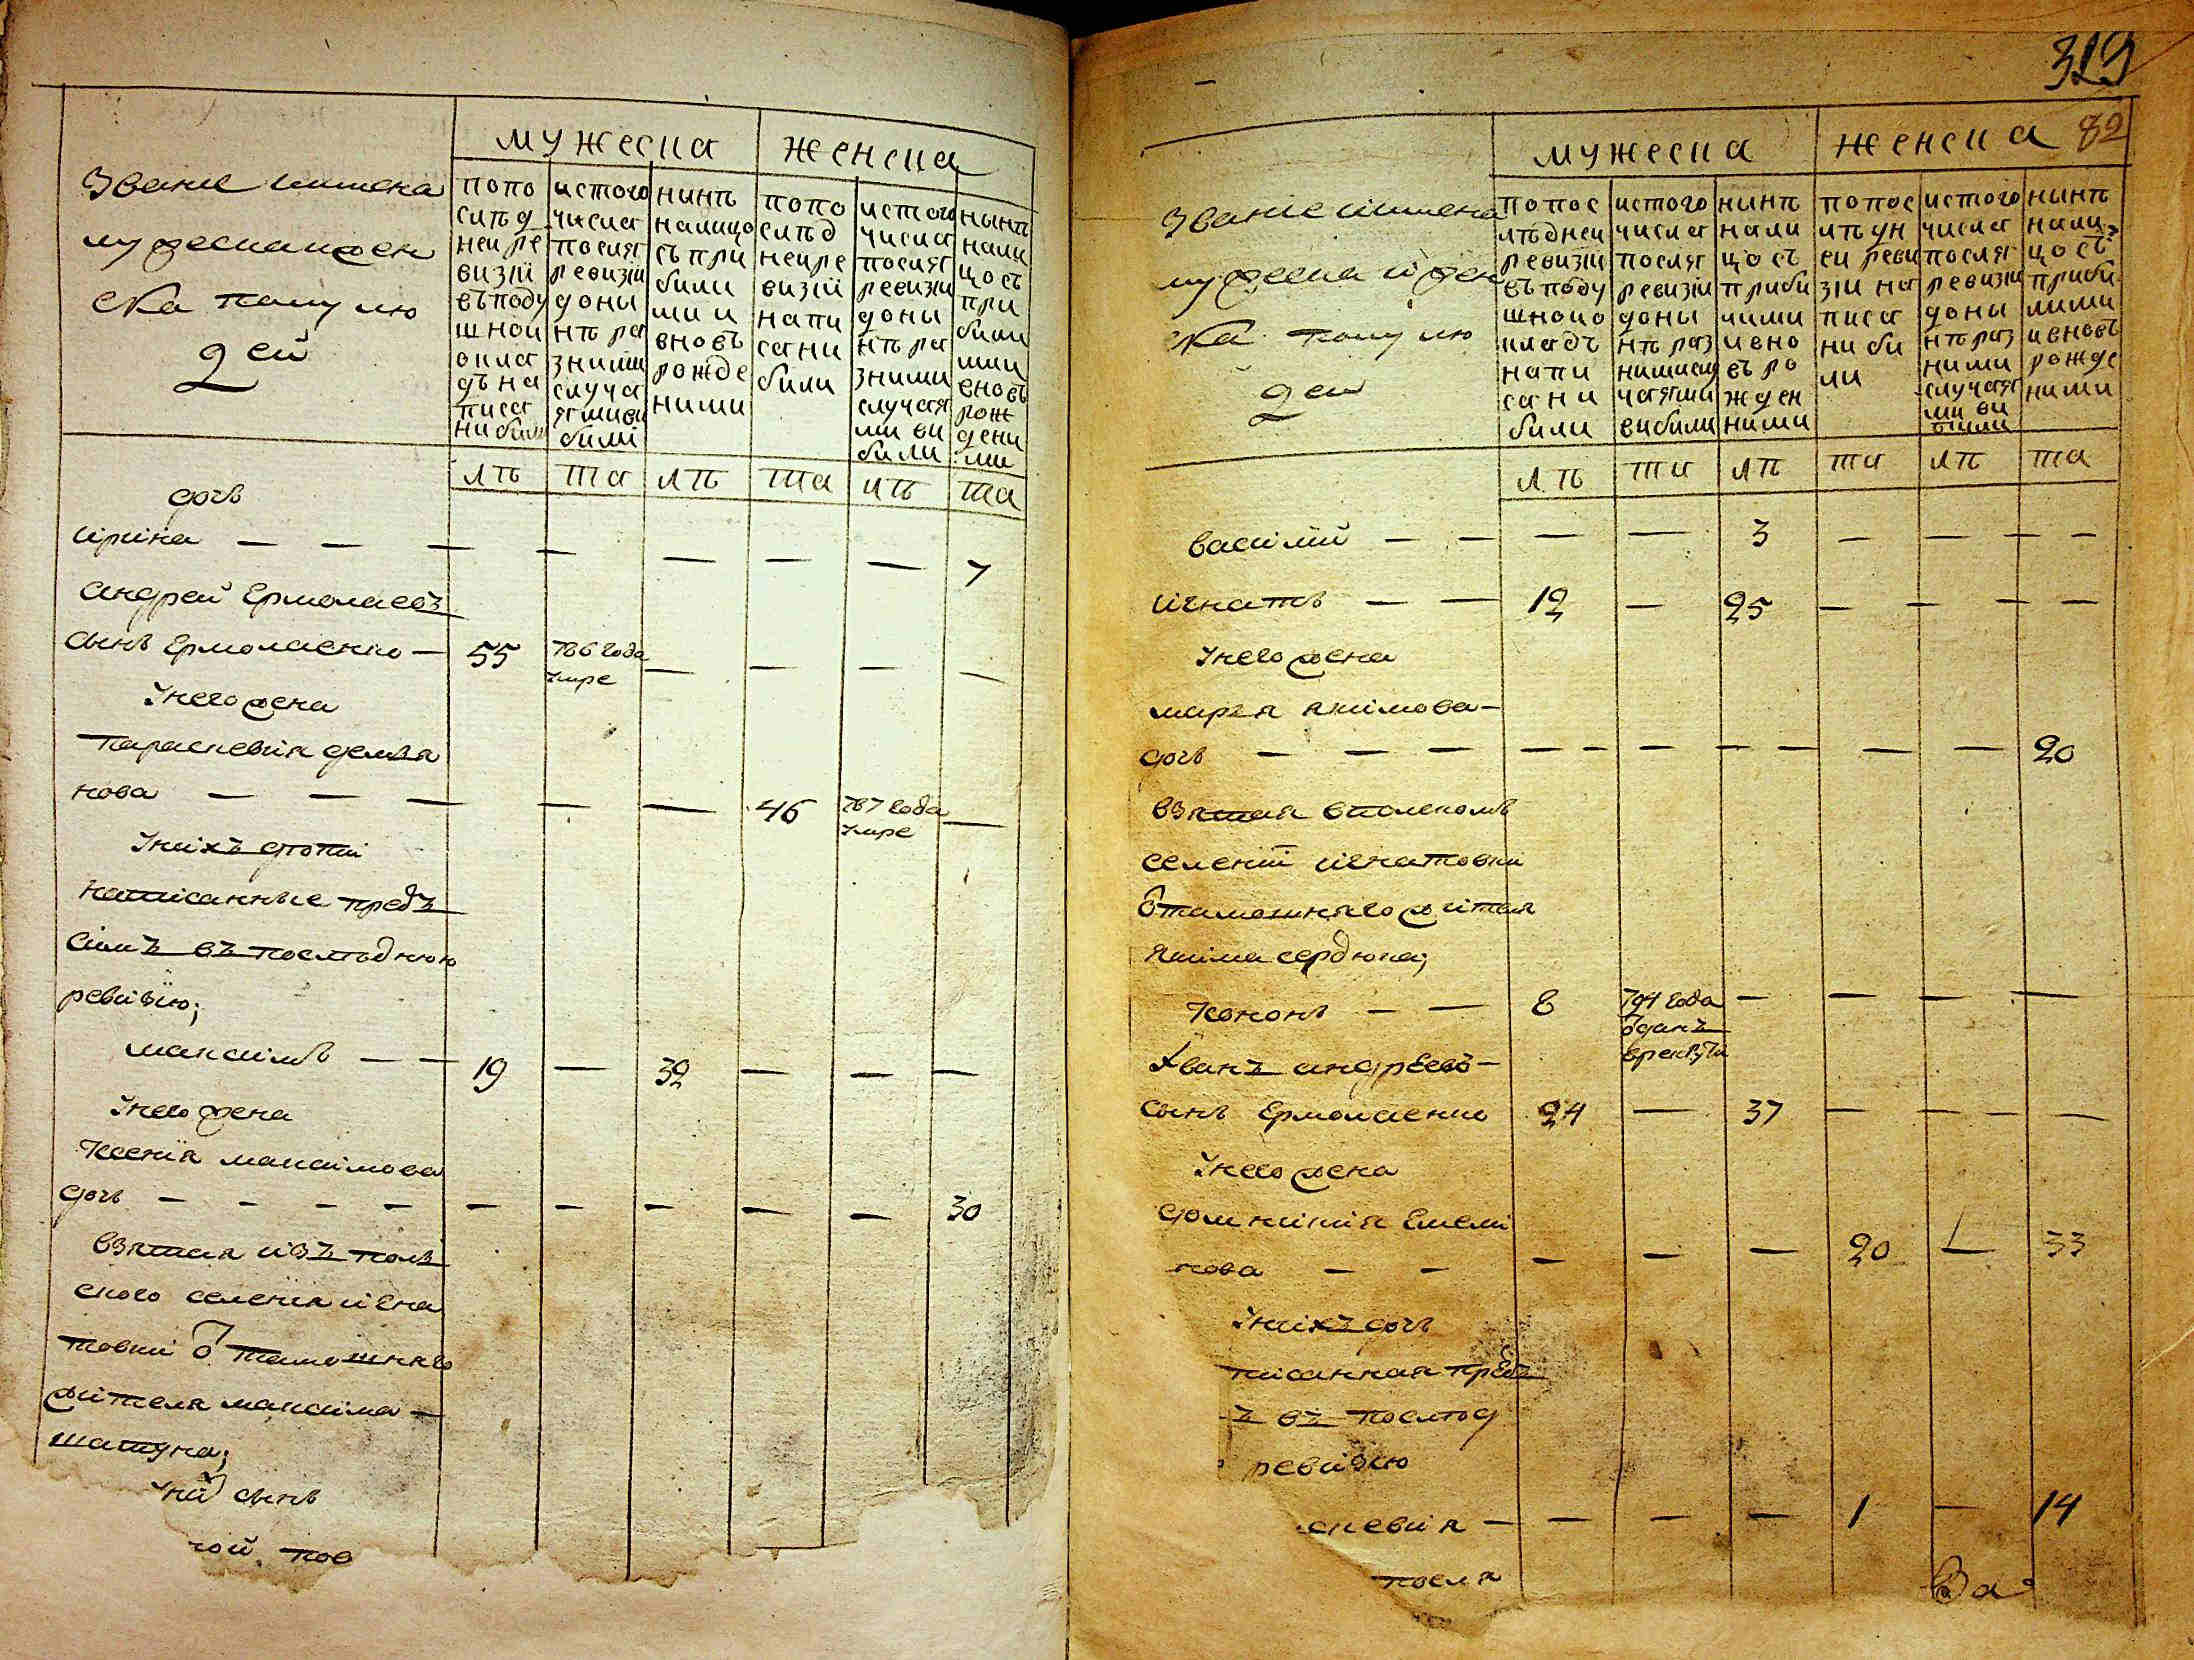 319
82
мужеска
женска
Звание иимена
мужескаижен
ска полу лю
дей
попо
слѣд
неи ре
визіи
въподу
шнои
окла
дъ на
писа
нибили
истого
числа
послѣ
ревизіи
доны
нѣ ра
зними
случа
ями ви
били
нинѣ
налицо
съ при
били
ми и
вновъ
рожде
ними
попо
слѣд
неи ре
визіи
напи
сани
били
истого
числа
послѣ
ревизіи
доны
нѣ ра
зними
случая
ми ви
били
нынѣ
нали
цо съ
при
били
ми и
вновъ
рож
дени
ми
лѣ
та
лѣ
та
лѣ
та
дочь
ирина — — — — — — — 7
Андрей Ермолаевъ
сынъ Ермоленко — 55 786 года — — — —
умре
Унего жена
параскевия демья
нова — — — — — 46 787 года —
умре
Унихъ дѣти
написанные предъ
симъ въ последнюю
ревизію;
максимъ — — 19 — 32 — — —
Унего жена
Ксения максимова
дочь — — — — — — — — — 30
взятая изъ поль
ского селения игна
товки от тамошняго
жителя максима —
шатуна;
Уни сынъ
мужеска
женска
Звание иимена
мужеска ижен
ска полу лю
дей
попос
лѣднеи
ревизіи
въподу
шноио
кладъ
напи
сани
били
истого
числа
послѣ
ревизіи
доны
нѣ раз
ними слу
чаями
вибили
нинѣ
нали
цо съ
приби
лими
ивно
въ ро
жден
ними
попос
лѣдн
еи реви
зіи на
писа
ни би
ли
истого
числа
послѣ
ревизіи
доны
нѣ раз
ними
случая
ми ви
били
нынѣ
нали
цо съ
приби
лими
ивновъ
рожде
ними
лѣ
та
лѣ
та
лѣ
та
василий — — — — 3 — — — —
игнатъ — — 12 — 25 — — — —
Унего жена
марья якимова —
дочь — — — — — — — — — — 20
взятая впольскомъ
селении игнатовки
от тамошняго жителя
якима сердюка;
Кононъ — — 8 794 года — — — —
отданъ
врекруты
Иванъ андреевъ —
сынъ Ермоленко 24 — 37 — — — —
Унего жена
домникия Емели
нова — — — — — 20 — 33
Унихъ дочь
писанная предъ
ъ въ послѣд
ревизию
скевия — — — — 1 — 14
посля
За